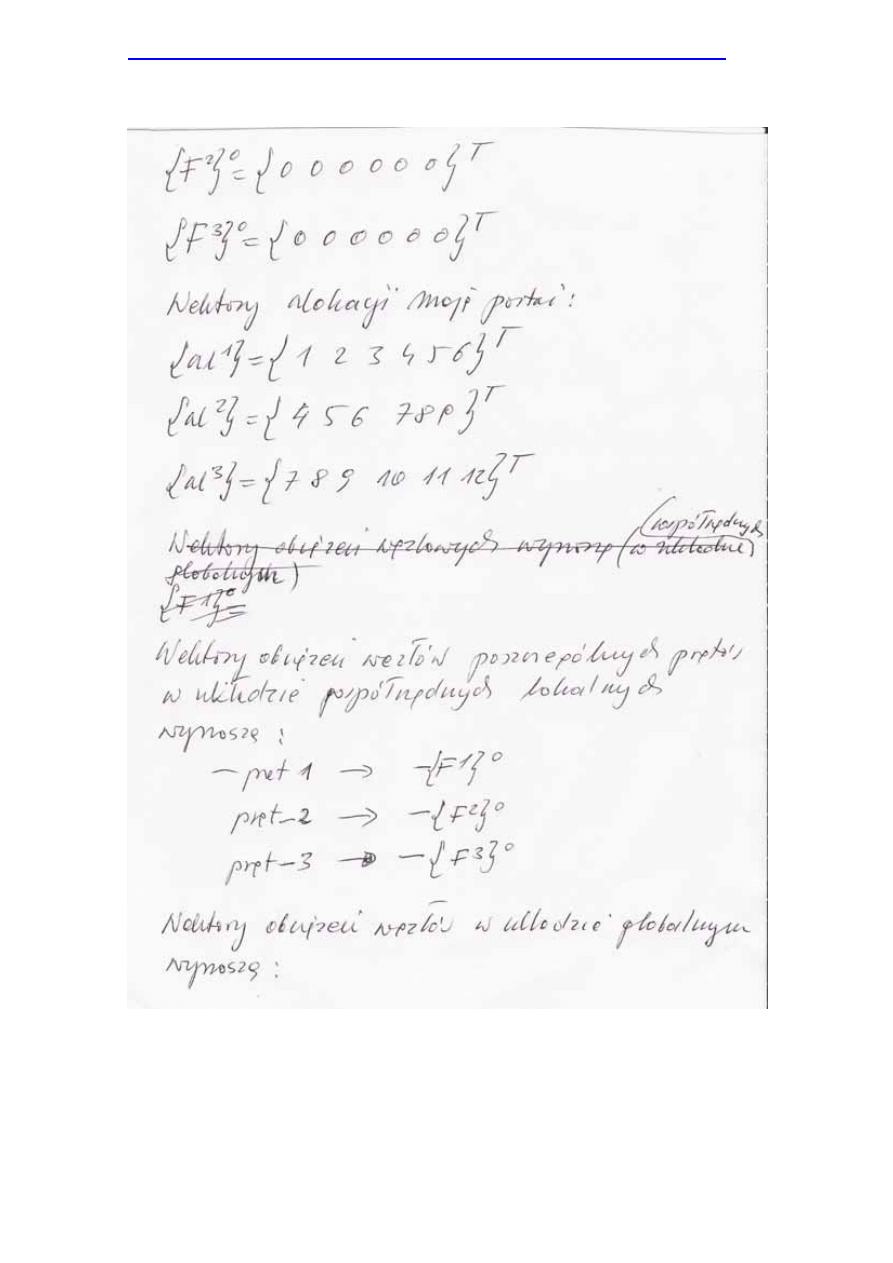 {F²}⁰ = {0 0 0 0 0 0}ᵀ
{F³}⁰ = {0 0 0 0 0 0}ᵀ
Wektory alokacji mają postać:
{al¹} = {1 2 3 4 5 6}ᵀ
{al²} = {4 5 6 7 8 9}ᵀ
{al³} = {7 8 9 10 11 12}ᵀ
współrzędnych
Wektory obciążeń węzłowych wynoszą (w układzie)
globalnych)
{F1}⁰ =
Wektory obciążeń węzłów poszczególnych prętów
w układzie współrzędnych lokalnych
wynoszą:
– pręt 1 → –{F1}⁰
pręt–2 → –{F2}⁰
pręt–3 → –{F3}⁰
Wektory obciążeń węzłów w układzie globalnym
wynoszą: